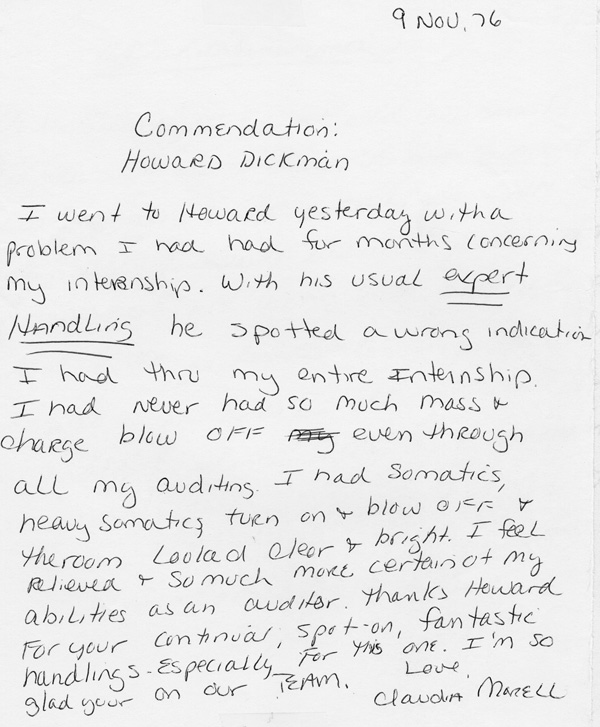 9 Nov, 76
Commendation:
Howard Dickman
I went to Howard yesterday with a
problem I had had for months concerning
my internship. With his usual expert
Handling he spotted a wrong indication
I had thru my entire Internship.
I had never had so much mass &
charge blow OFF my even through
all my auditing. I had somatics,
heavy somatics turn on & blow OFF &
the room Looked clear & bright. I feel
relieved & so much more certain of my
abilities as an auditor. Thanks Howard
For your continual, spot-on, fantastic
handlings. Especially For this one. I'm so
glad your on our TEAM. Love,
Claudia Morell